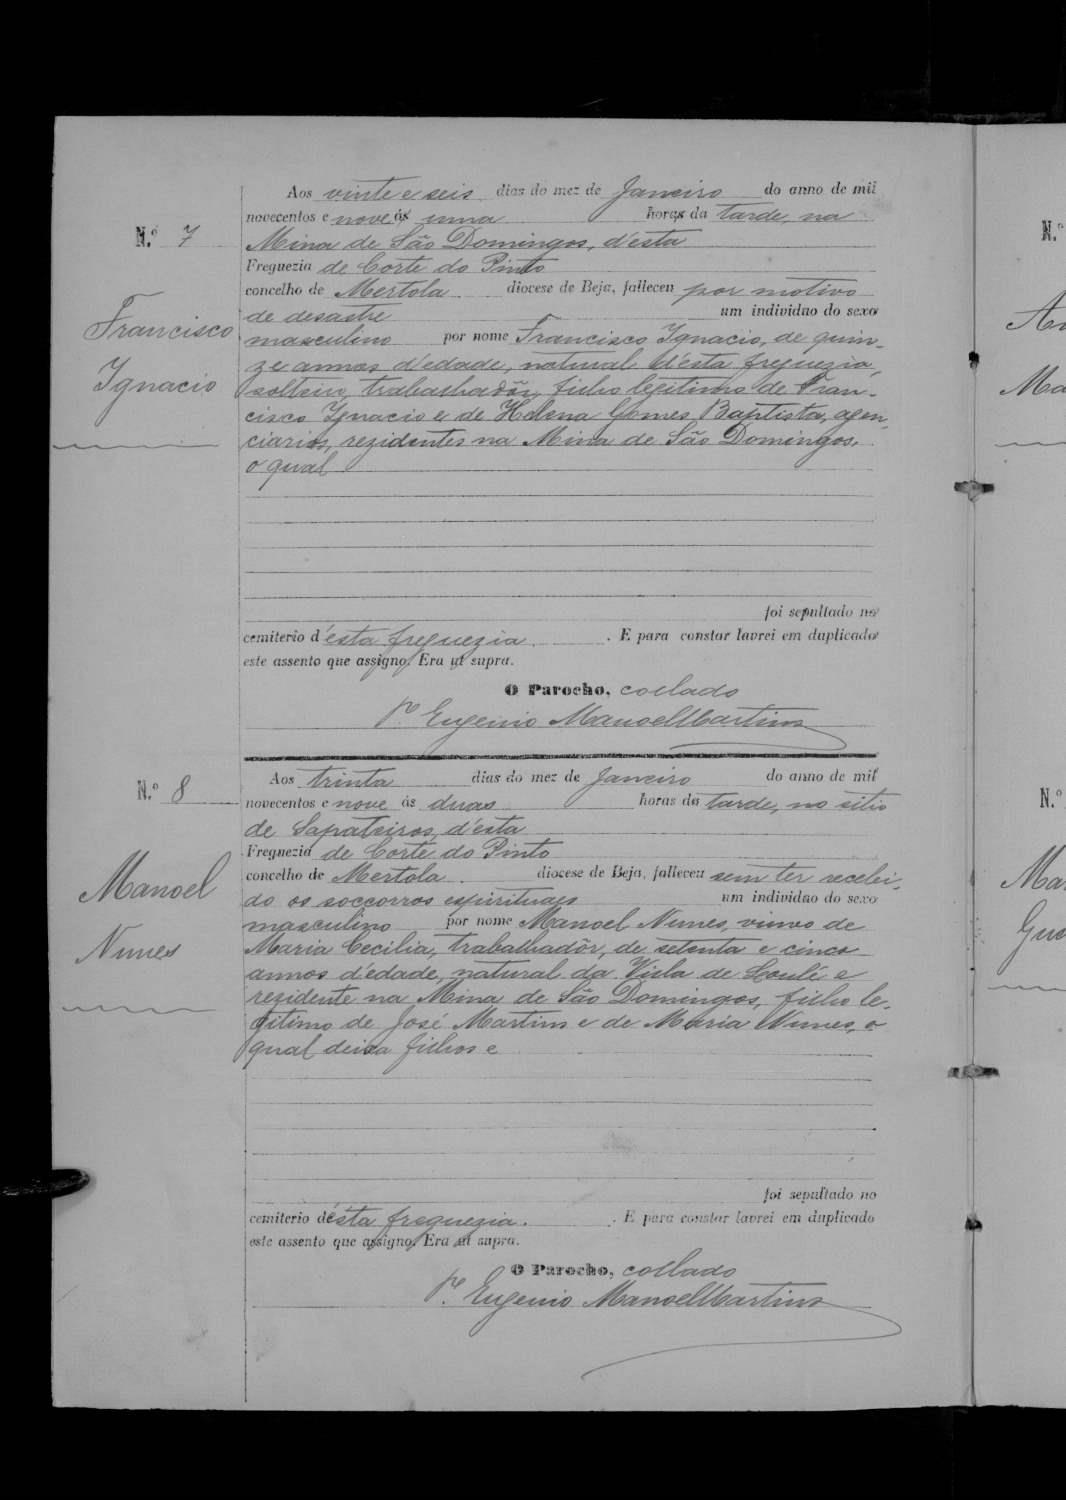 N.º 7
Francisco
Ignacio
Aos vinte e seis dias do mez de Janeiro do anno de mil
novecentos e nove ás uma horas da tarde, na
Mina de São Domingos, d'esta
Freguezia de Corte do Pinto
concelho de Mertola diocese de Beja, falleceu por motivo
de desastre um individuo do sexo
masculino por nome Francisco Ignacio, de quin-
ze annos d'edade, natural d'esta freguezia,
solteiro, trabalhadôr, filho legitimo de Fran-
cisco Ignacio e de Helena Gomes Baptista, agen-
ciarios, rezidentes na Mina de São Domingos,
o qual
foi sepultado no
cemiterio d'esta freguezia. E para constar lavrei em duplicado
este assento que assigno. Era ut supra.
O Parocho, collado
P.e Eugenio Manoel Martins
N.º 8
Manoel
Nunes
Aos trinta dias do mez de Janeiro do anno de mil
novecentos e nove ás duas horas da tarde, no sitio
de Sapateiros, d'esta
Freguezia de Corte do Pinto
concelho de Mertola diocese de Beja, falleceu sem ter recebi-
do os soccorros espirituaes um individuo do sexo
masculino por nome Manoel Nunes, viuvo de
Maria Cecilia, trabalhadôr, de setenta e cinco
annos d'edade, natural da Villa de Loulé e
rezidente na Mina de São Domingos, filho le-
gitimo de José Martins e de Maria Nunes, o
qual deixa filhos e
foi sepultado no
cemiterio d'esta freguezia. E para constar lavrei em duplicado
este assento que assigno. Era ut supra.
O Parocho, collado
P.e Eugenio Manoel Martins
N.º
N.º